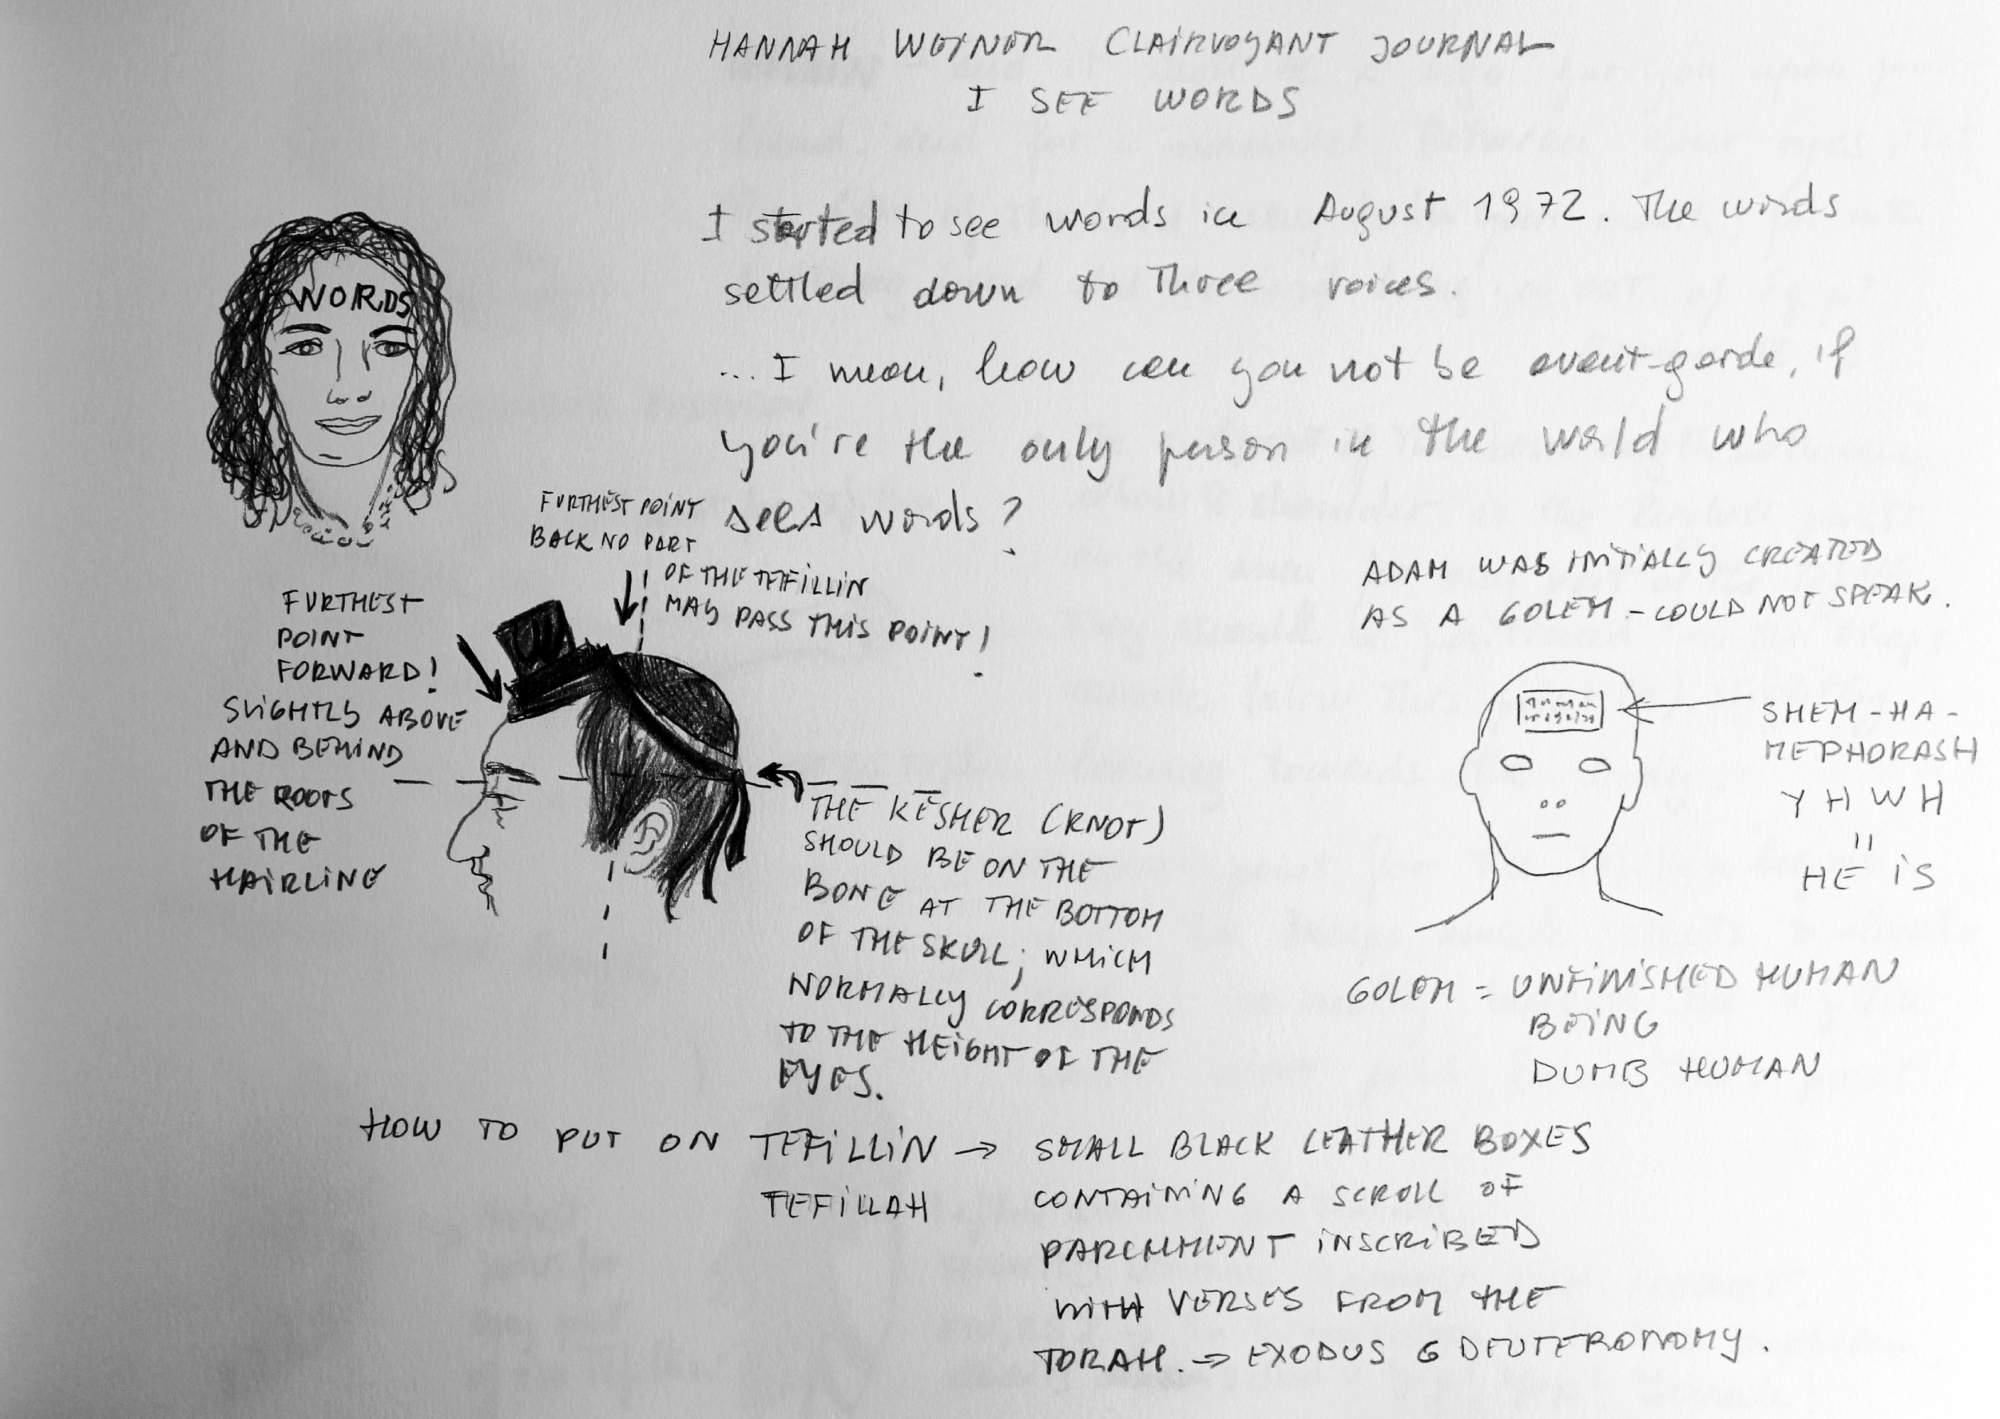 HANNAH WEINER CLAIRVOYANT JOURNAL
I SEE WORDS
I started to see words in August 1972. The words
settled down to three voices.
...I mean, how can you not be avant-garde, if
you're the only person in the world who
sees words?
WORDS
FURTHEST POINT
BACK NO PART
OF THE TEFILLIN
MAY PASS THIS POINT!
FURTHEST
POINT
FORWARD!
SLIGHTLY ABOVE
AND BEHIND
THE ROOTS
OF THE
HAIRLINE
THE KESHER (KNOT)
SHOULD BE ON THE
BONE AT THE BOTTOM
OF THE SKULL, WHICH
NORMALLY CORRESPONDS
TO THE HEIGHT OF THE
EYES.
ADAM WAS INITIALLY CREATED
AS A GOLEM - COULD NOT SPEAK.
SHEM-HA-
MEPHORASH
YHWH
=
HE IS
GOLEM = UNFINISHED HUMAN
BEING
DUMB HUMAN
HOW TO PUT ON TEFILLIN → SMALL BLACK LEATHER BOXES
TEFILLAH CONTAINING A SCROLL OF
PARCHMENT INSCRIBED
WITH VERSES FROM THE
TORAH. → EXODUS & DEUTERONOMY.